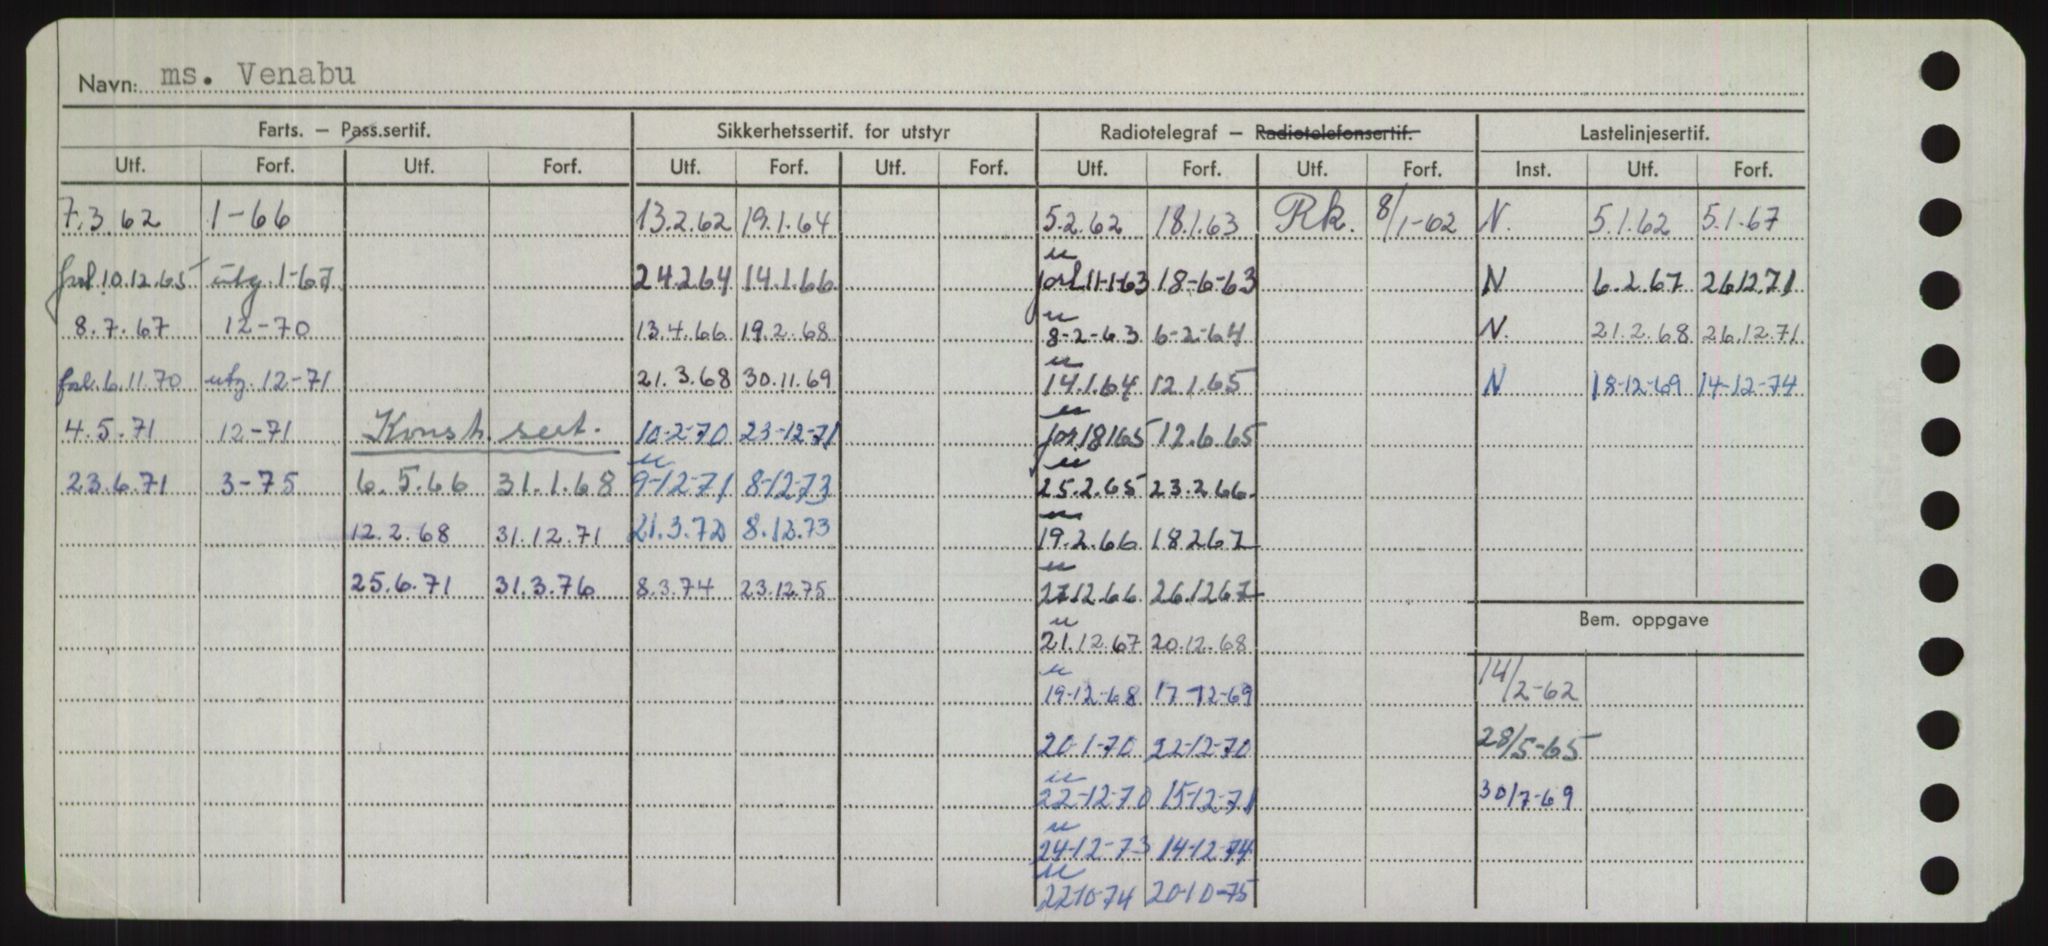 Navn: ms. Venabu
Farts. – Pass.sertif. Sikkerhetssertif. for utstyr Radiotelegraf – Radiotelefonsertif. Lastelinjesertif.
Utf. Forf. Utf. Forf. Utf. Forf. Utf. Forf. Utf. Forf. Utf. Forf. Inst. Utf. Forf.
7.3.62 1-66 13.2.62 19.1.64 5.2.62 18.1.63 Rk. 8/1-62 N. 5.1.62 5.1.67
forl.10.12.65 utg. 1-67 24.2.64 14.1.66 forl.11-1-63 18-6-63 N 6.2.67 26.12.71
8.7.67 12-70 13.4.66 19.2.68 8-2-63 6-2-64 N. 21.2.68 26.12.71
forl.6.11.70 utg. 12-71 21.3.68 30.11.69 14.1.64 12.1.65 N 18-12-69 14-12-74
4.5.71 12-71 Konst. sert. 10-2-70 23-12-71 for.18165 12.6.65
23.6.71 3-75 6.5.66 31.1.68 9-12-71 8-12-73 25.2.65 23.2.66
12.2.68 31.12.71 21.3.72 8.12.73 19.2.66 18267
25.6.71 31.3.76 8.3.74 23.12.75 27.12.66 26.1267
Bem. oppgave
21.12.67 20.12.68
19-12-68 17-12-69 14/2-62
20-1-70 22-12-70 28/5-65
22-12-70 15-12-71 30/7-69
24-12-73 14-12-74
22-10-74 20-10-75